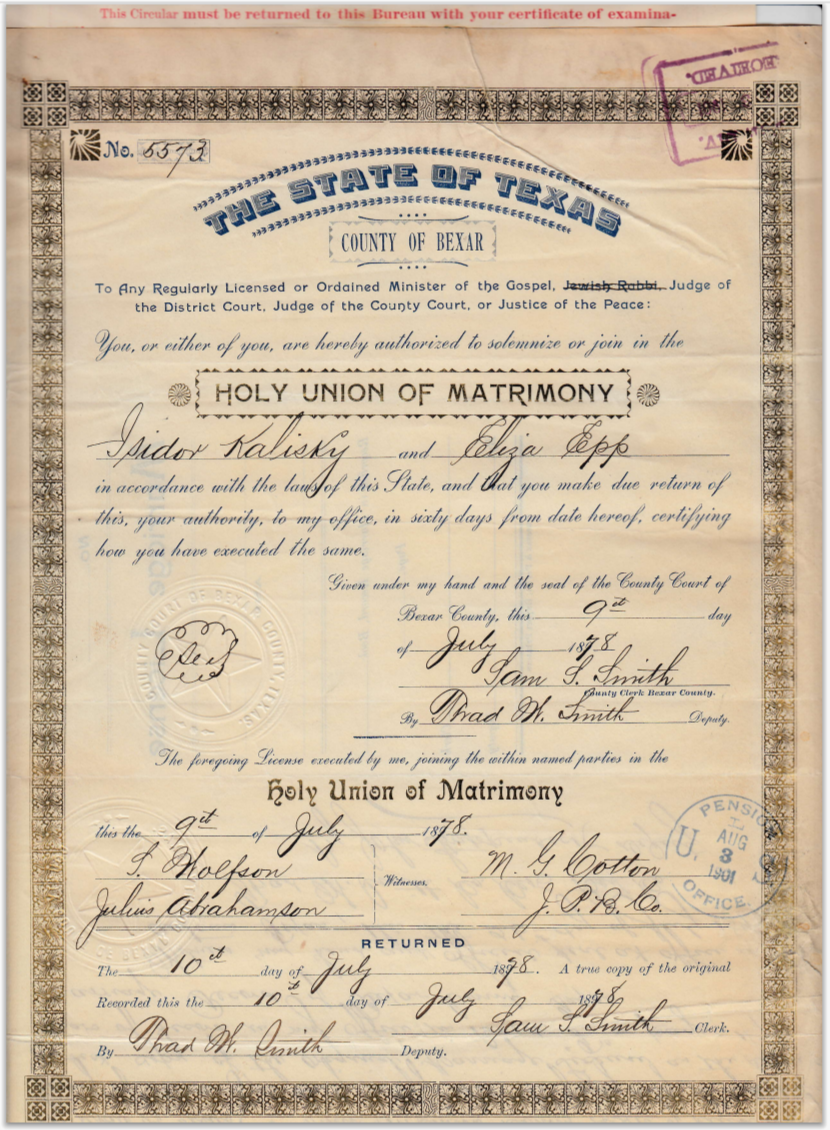 This Circular must be returned to this Bureau with your certificate of examina-
No. 5573
THE STATE OF TEXAS
COUNTY OF BEXAR
To Any Regularly Licensed or Ordained Minister of the Gospel, Jewish Rabbi, Judge of
the District Court, Judge of the County Court, or Justice of the Peace:
You, or either of you, are hereby authorized to solemnize or join in the
HOLY UNION OF MATRIMONY
Isidor Kalisky and Eliza Epp
in accordance with the laws of this State, and that you make due return of
this, your authority, to my office, in sixty days from date hereof, certifying
how you have executed the same.
Given under my hand and the seal of the County Court of
Bexar County, this 9th day
of July 1878
Seal
COUNTY COURT OF BEXAR COUNTY, TEXAS
Sam S. Smith
County Clerk Bexar County.
By Thad W. Smith Deputy.
The foregoing License executed by me, joining the within named parties in the
Holy Union of Matrimony
this the 9th of July 1878.
S. Wolfson
Julius Abrahamson
Witnesses.
M. G. Cotton
J. P. B. Co.
U.
PENSION
AUG
3
1901
OFFICE
RETURNED
The 10th day of July 1878. A true copy of the original
Recorded this the 10th day of July 1878
Sam S. Smith Clerk.
By Thad W. Smith Deputy.